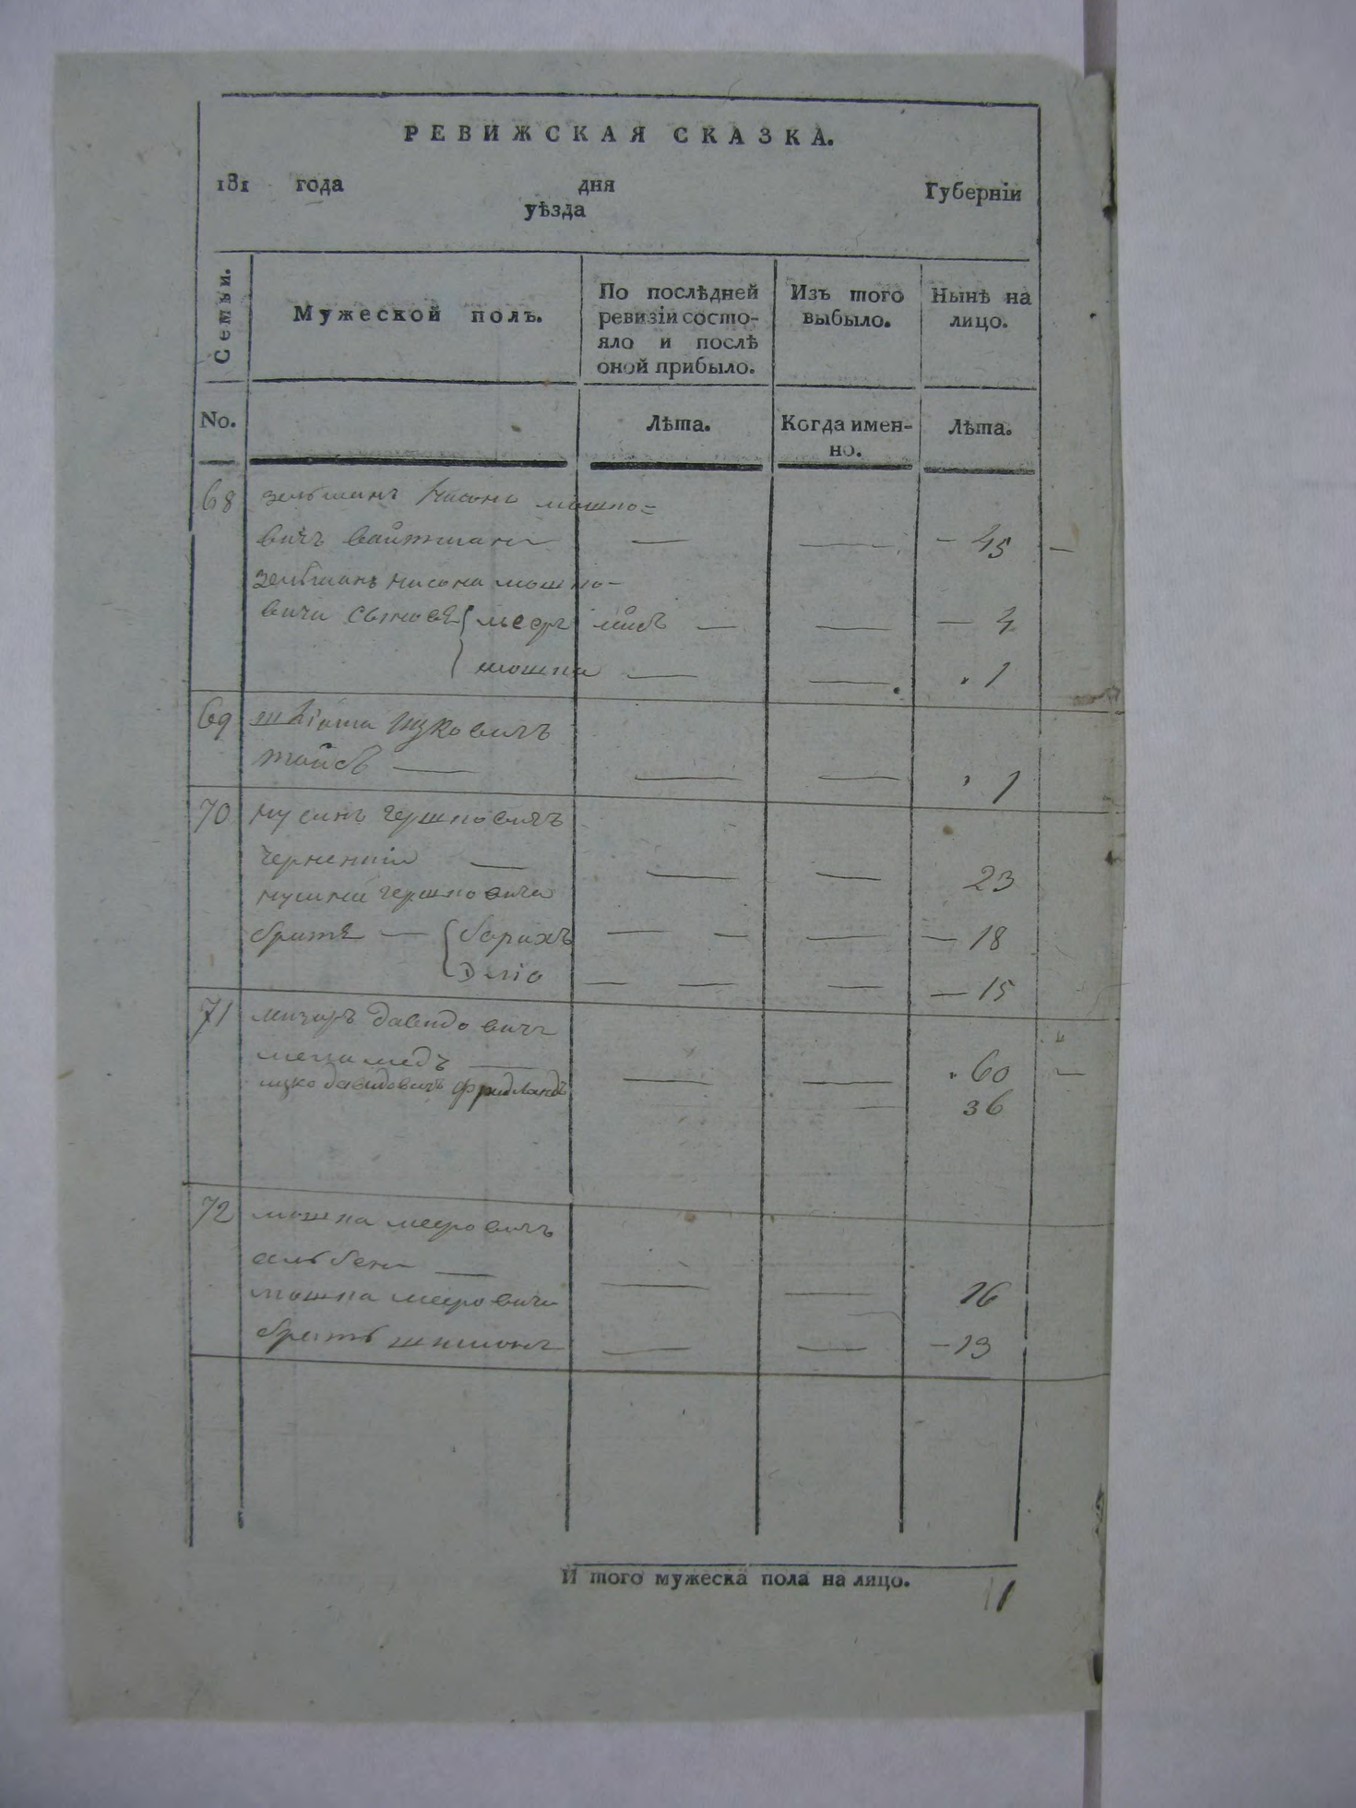 РЕВИЖСКАЯ СКАЗКА.
181 года дня Губерніи
уѣзда
Семьи.
Мужеской полъ.
По послѣдней ревизіи состо-
яло и послѣ
оной прибыло.
Изъ того
выбыло.
Нынѣ на
лицо.
No.
Лѣта.
Когда имен-
но.
Лѣта.
68 зельманъ нисонъ мошко=
вичъ вайтманъ — — - 45 —
зельмана нисона мошко-
вича сыновя { меер лейб — — — 4
{ мошка — — 1
69 Ицковичъ
— — — 1
70 гершковичъ
— — — 23
гершковича
братя — { борихъ — — — — 18
— — — — 15
71 давидовичъ
мецимедъ — — — 60 —
ицко давидовичъ фридландъ — 36
72 мошка меерович
— — — 16
мошка мееровича
братъ шимонъ — — - 13
И того мужеска пола на лицо. 11